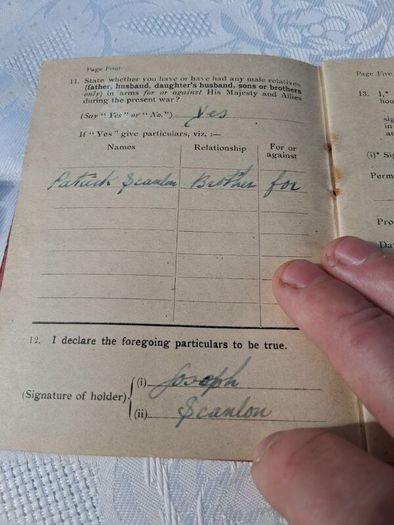 Page Four
11. State whether you have or have had any male relatives
(father, husband, daughter's husband, sons or brothers
only) in arms for or against His Majesty and Allies
during the present war?
(Say "Yes" or "No.") Yes
If "Yes" give particulars, viz. :—
Names Relationship For or against
Patrick Scanlon Brother for
12. I declare the foregoing particulars to be true.
(Signature of holder) (i) Joseph
(ii) Scanlon
Page Five
13. 1,*
hou
(i)* Sig
Perm
Pro
Da